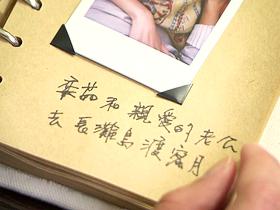 和親愛的老公
去長灘島渡蜜月